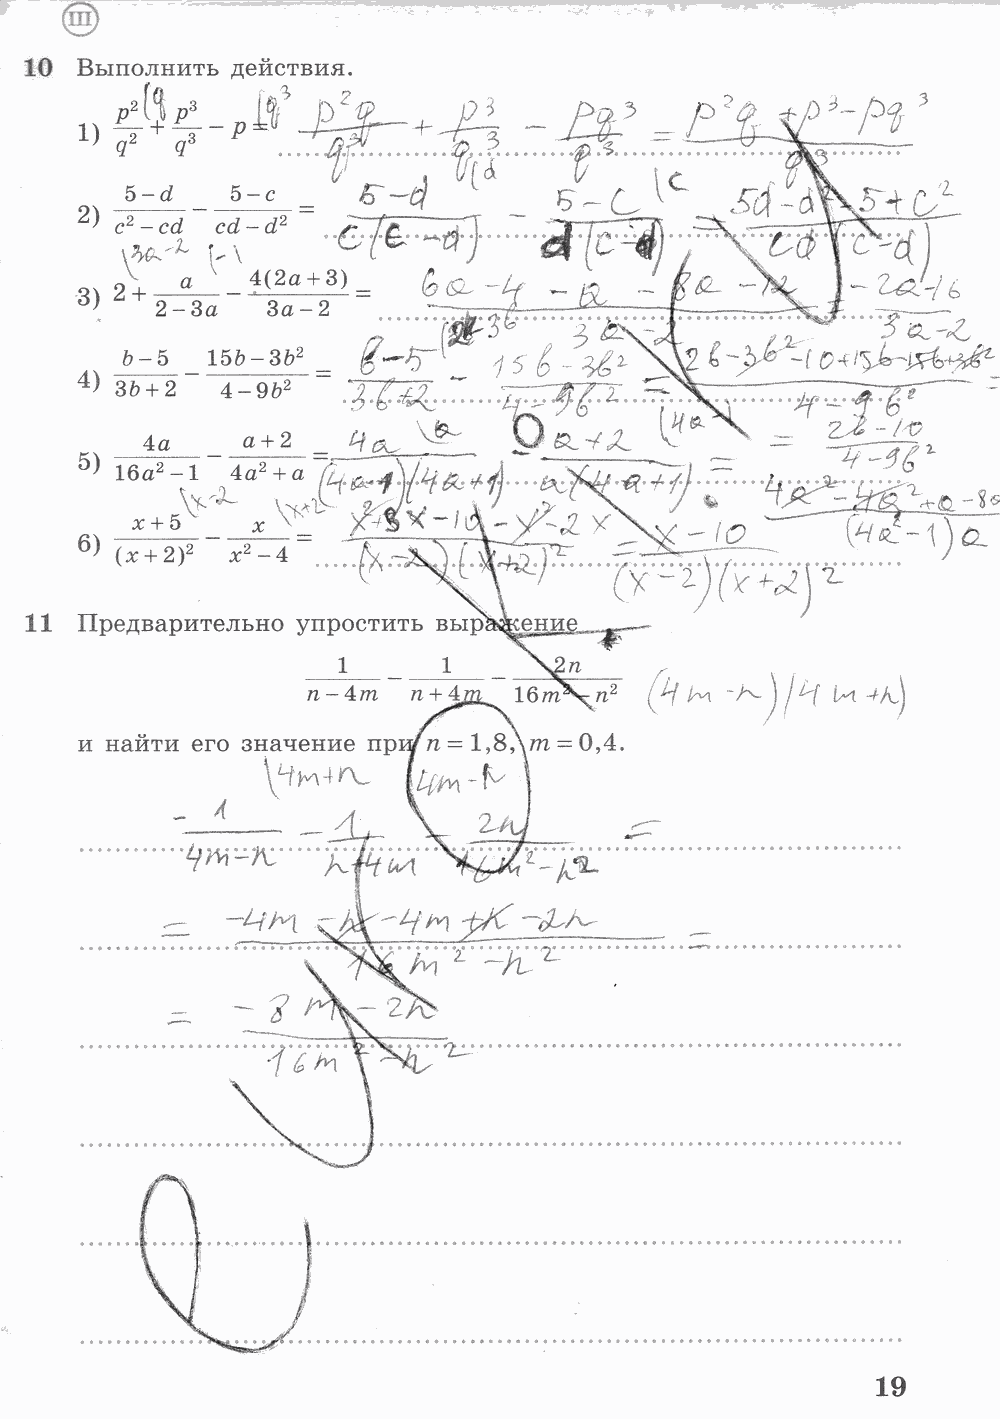 III
10 Выполнить действия.
1) p²/q² + p³/q³ − p = p²q/q³ + p³/q³ − pq³/q³ = (p²q + p³ − pq³)/q³
2) (5−d)/(c²−cd) − (5−c)/(cd−d²) = (5−d)/(c(c−d)) − (5−c)/(d(c−d)) = (5d−d²−5+c²)/(cd(c−d))
3) 2 + a/(2−3a) − 4(2a+3)/(3a−2) = (6a−4−a−8a−12)/(3a−2) = (−2a−16)/(3a−2)
4) (b−5)/(3b+2) − (15b−3b²)/(4−9b²) = (b−5)/(3b+2) − (15b−3b²)/(4−9b²) = (2b−3b²−10+15b−15b+3b²)/(4−9b²) =
= (2b−10)/(4−9b²)
5) 4a/(16a²−1) − (a+2)/(4a²+a) = 4a/((4a−1)(4a+1)) − (a+2)/(a(4a+1)) =
6) (x+5)/(x+2)² − x/(x²−4) = (x²+3x−10−x²−2x)/((x−2)(x+2)²) = (x−10)/((x−2)(x+2)²)
11 Предварительно упростить выражение
1/(n−4m) − 1/(n+4m) − 2n/(16m²−n²) (4m−n)(4m+n)
и найти его значение при n=1,8, m=0,4.
4m+n 4m−n
−1/(4m−n) − 1/(n+4m) − 2n/(16m²−n²) =
= (−4m−n−4m+n−2n)/(16m²−n²) =
= (−8m−2n)/(16m²−n²)
19